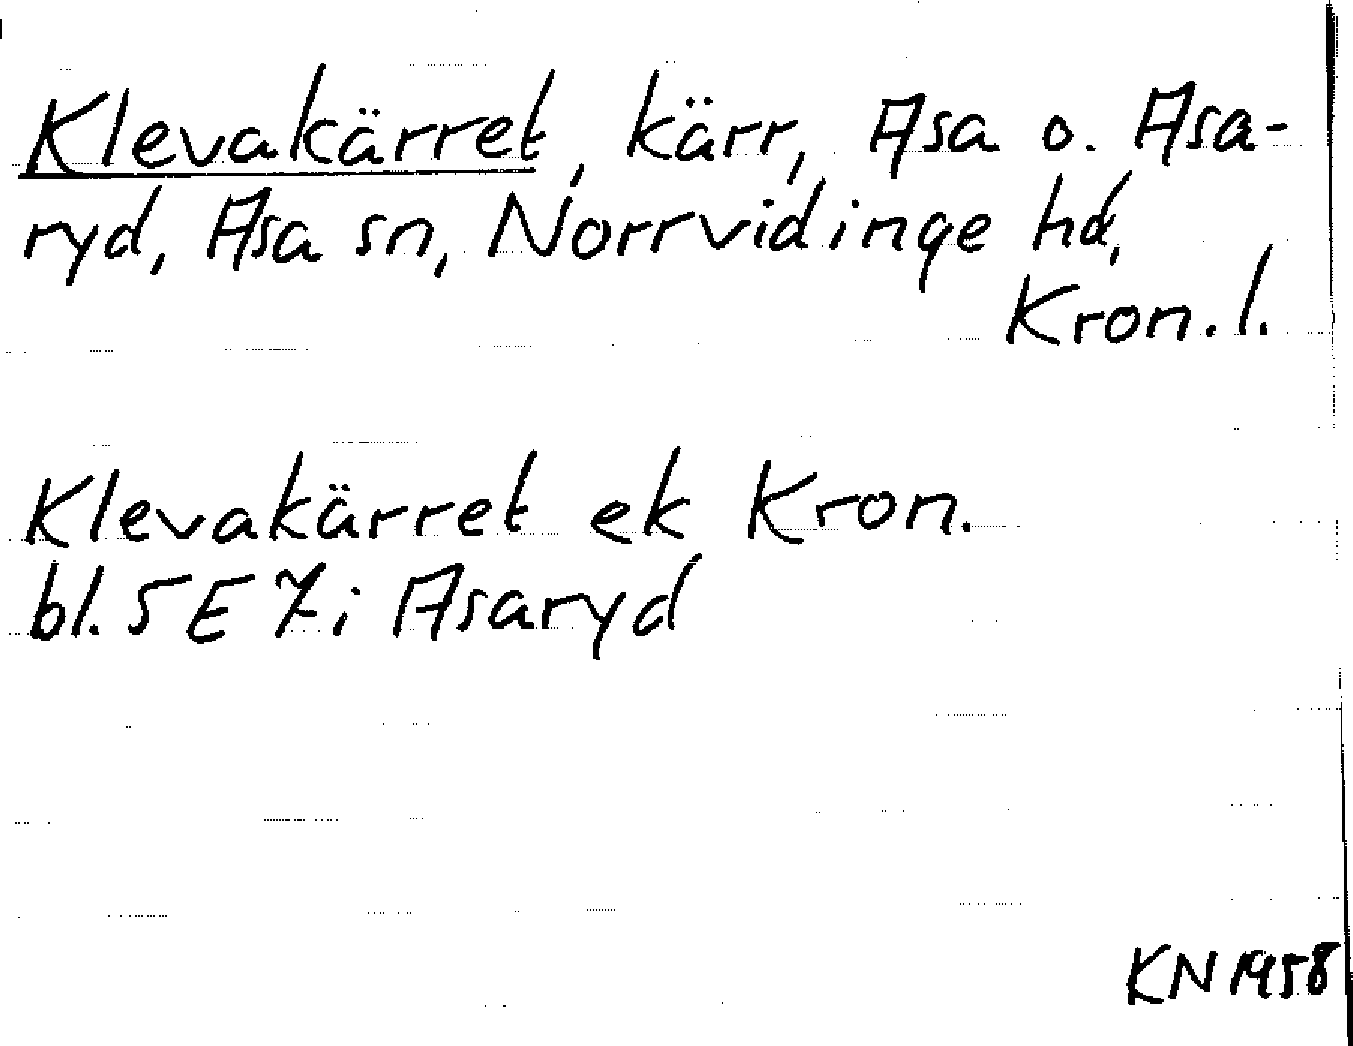 Klevakärret, kärr, Asa o. Asa-
ryd, Asa sn, Norrvidinge hd,
Kron. l.
Klevakärret ek Kron.
bl. 5 E 7 i Asaryd
KN 1958